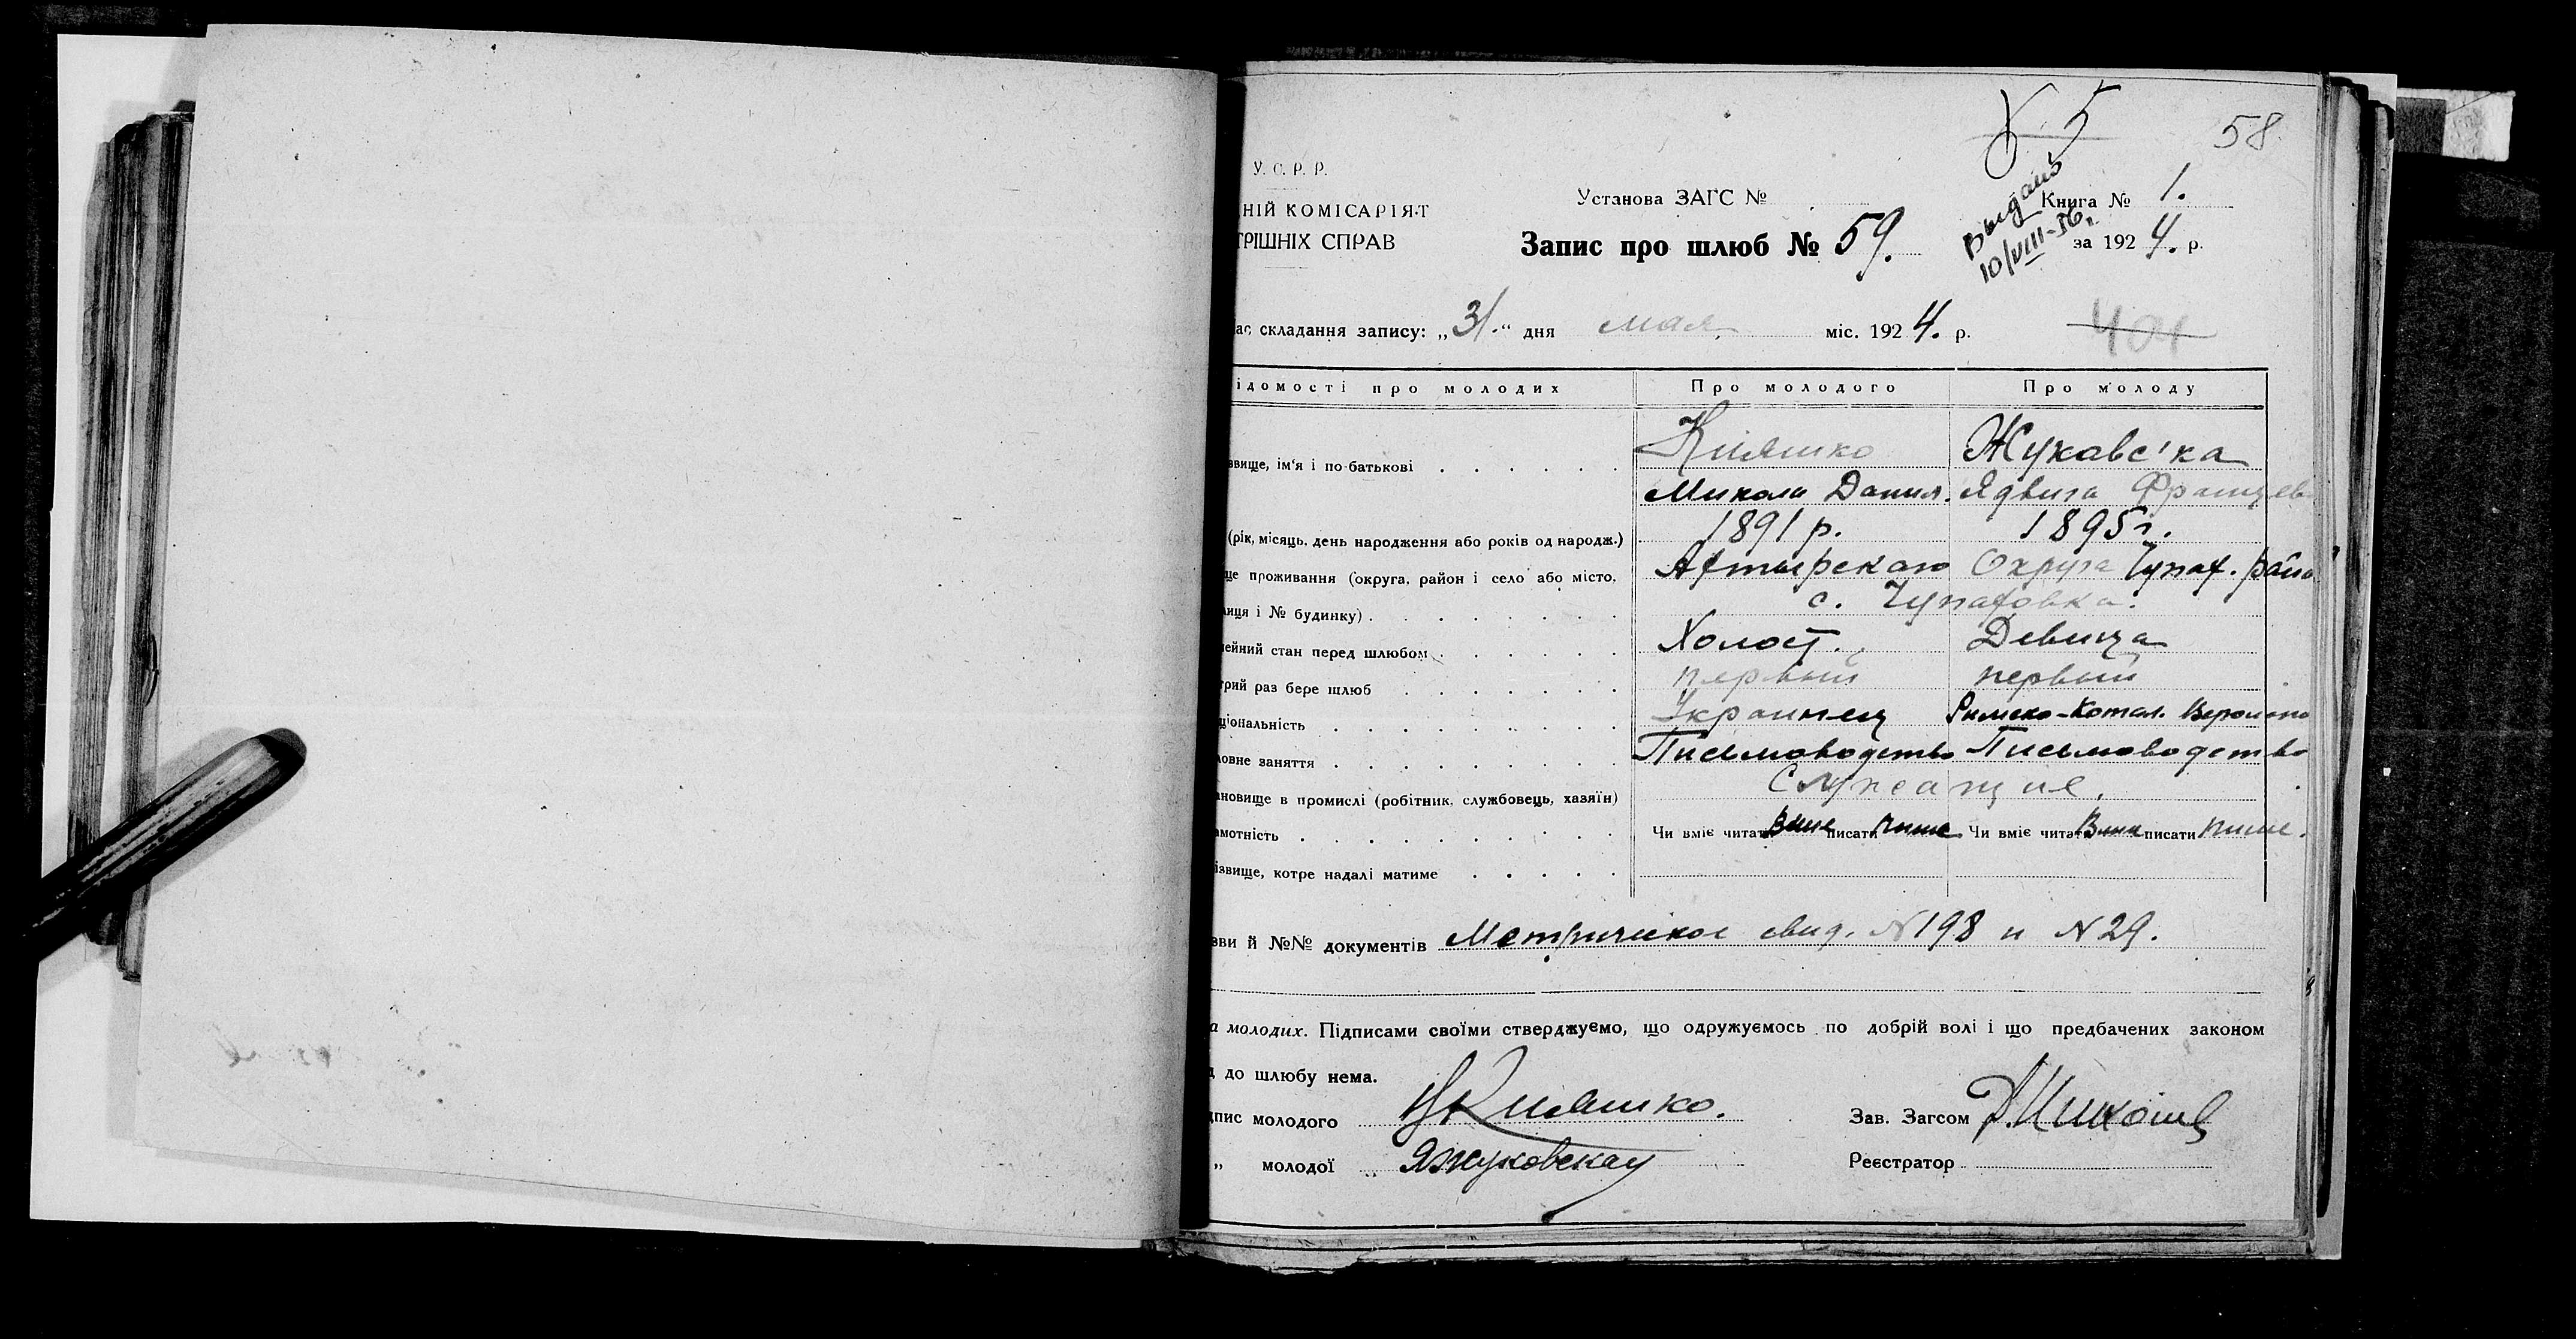 58
5
У. С. Р. Р.
НІЙ КОМІСАРІЯТ
ТРІШНІХ СПРАВ
Установа ЗАГС №
Книга № 1.
Выдано
10/VIII-56г.
Запис про шлюб № 59.
за 1924. р.
ас складання запису: „31.“ дня мая міс. 1924. р.
404
ідомості про молодих Про молодого Про молоду
звище, ім'я і по-батькові Кияшко Жукавс'ка
Микола Данил. Ядвига Францев
(рік, місяць, день народження або років од народж.) 1891 р. 1895 г.
це проживання (округа, район і село або місто, Ахтырского Округа Чупах. райо
лиця і № будинку) с. Чупаховка.
ейний стан перед шлюбом Холост. Девица
трий раз бере шлюб первый первый
ціональність Украинец Римско-Катол.
ловне заняття Письмоводство Письмоводство
ановище в промислі (робітник, службовець, хазяїн) Служащие.
амотність Чи вміє читати писати пише Чи вміє читати писати пише.
ізвище, котре надалі матиме
зви й №№ документів Метрическое свид. N198 и N29.
а молодих. Підписами своїми стверджуємо, що одружуємось по добрій волі і що предбачених законом
д до шлюбу нема.
дпис молодого Кияшко. Зав. Загсом
„ молодої ЯЖуковская Реєстратор